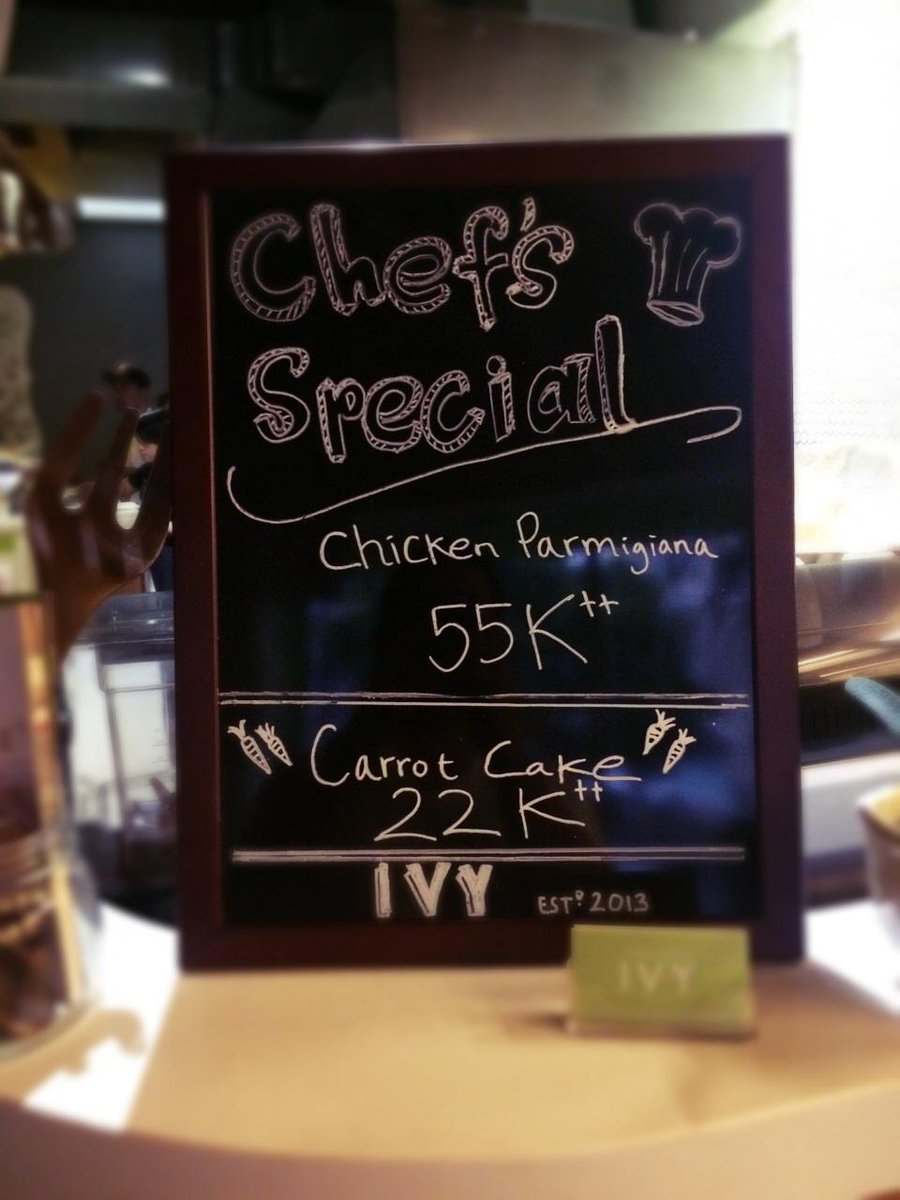 Chef's
Special
Chicken Parmigiana
55K++
Carrot Cake
22K++
IVY ESTD 2013
IVY